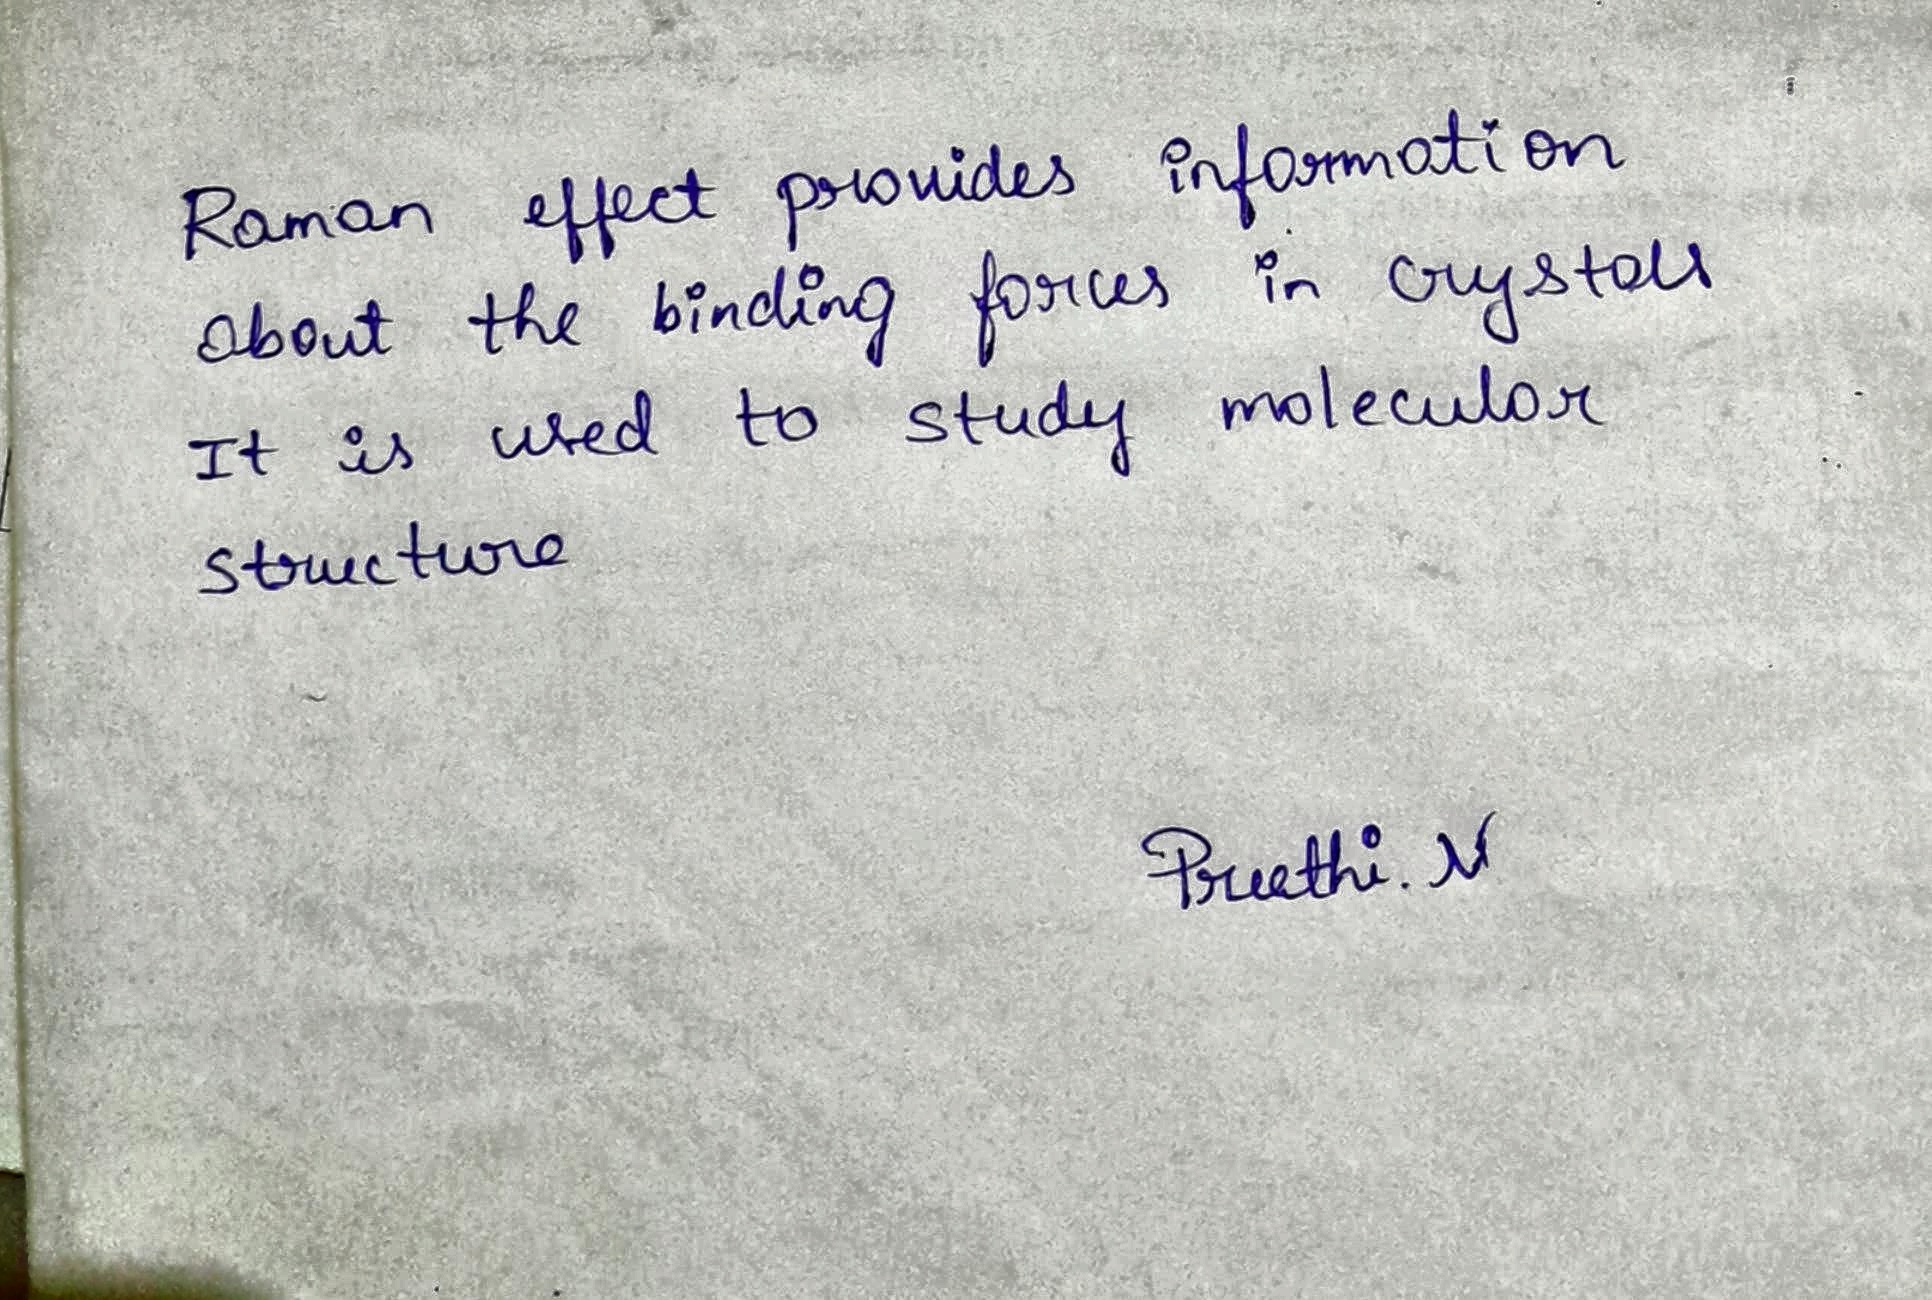 Raman effect provides information
about the binding forces in crystals
It is used to study molecular
structure
Preethi. N